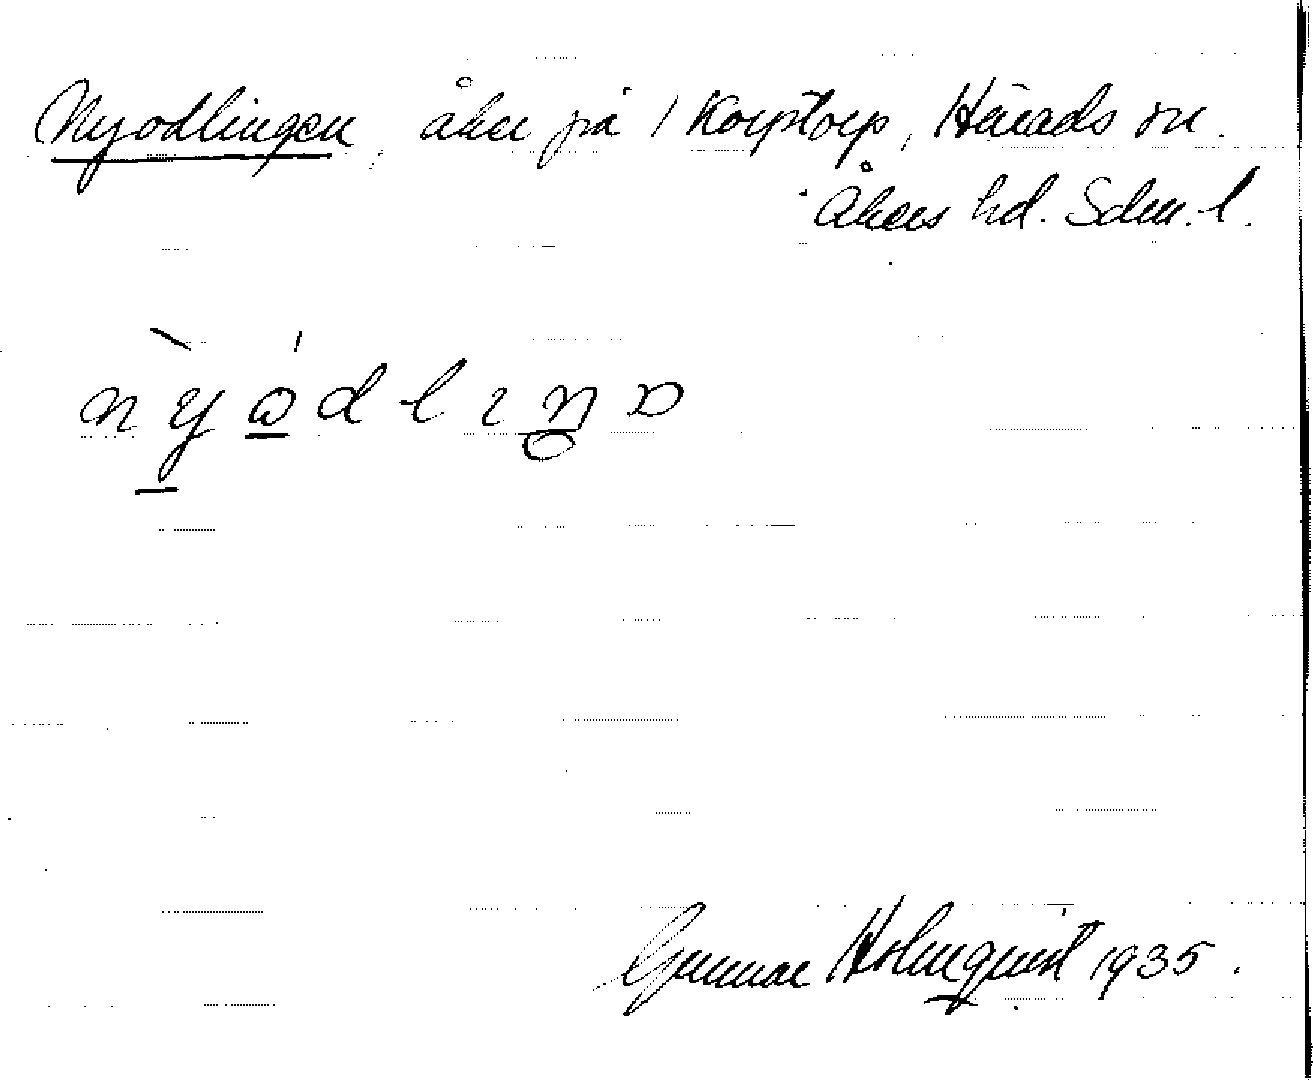 Nyodlingen, åker på / Korptorp, Härads sn.
Åkers hd. Sdm. l.
nỳódlıŋɒ
Gunnar Holmqvist 1935.